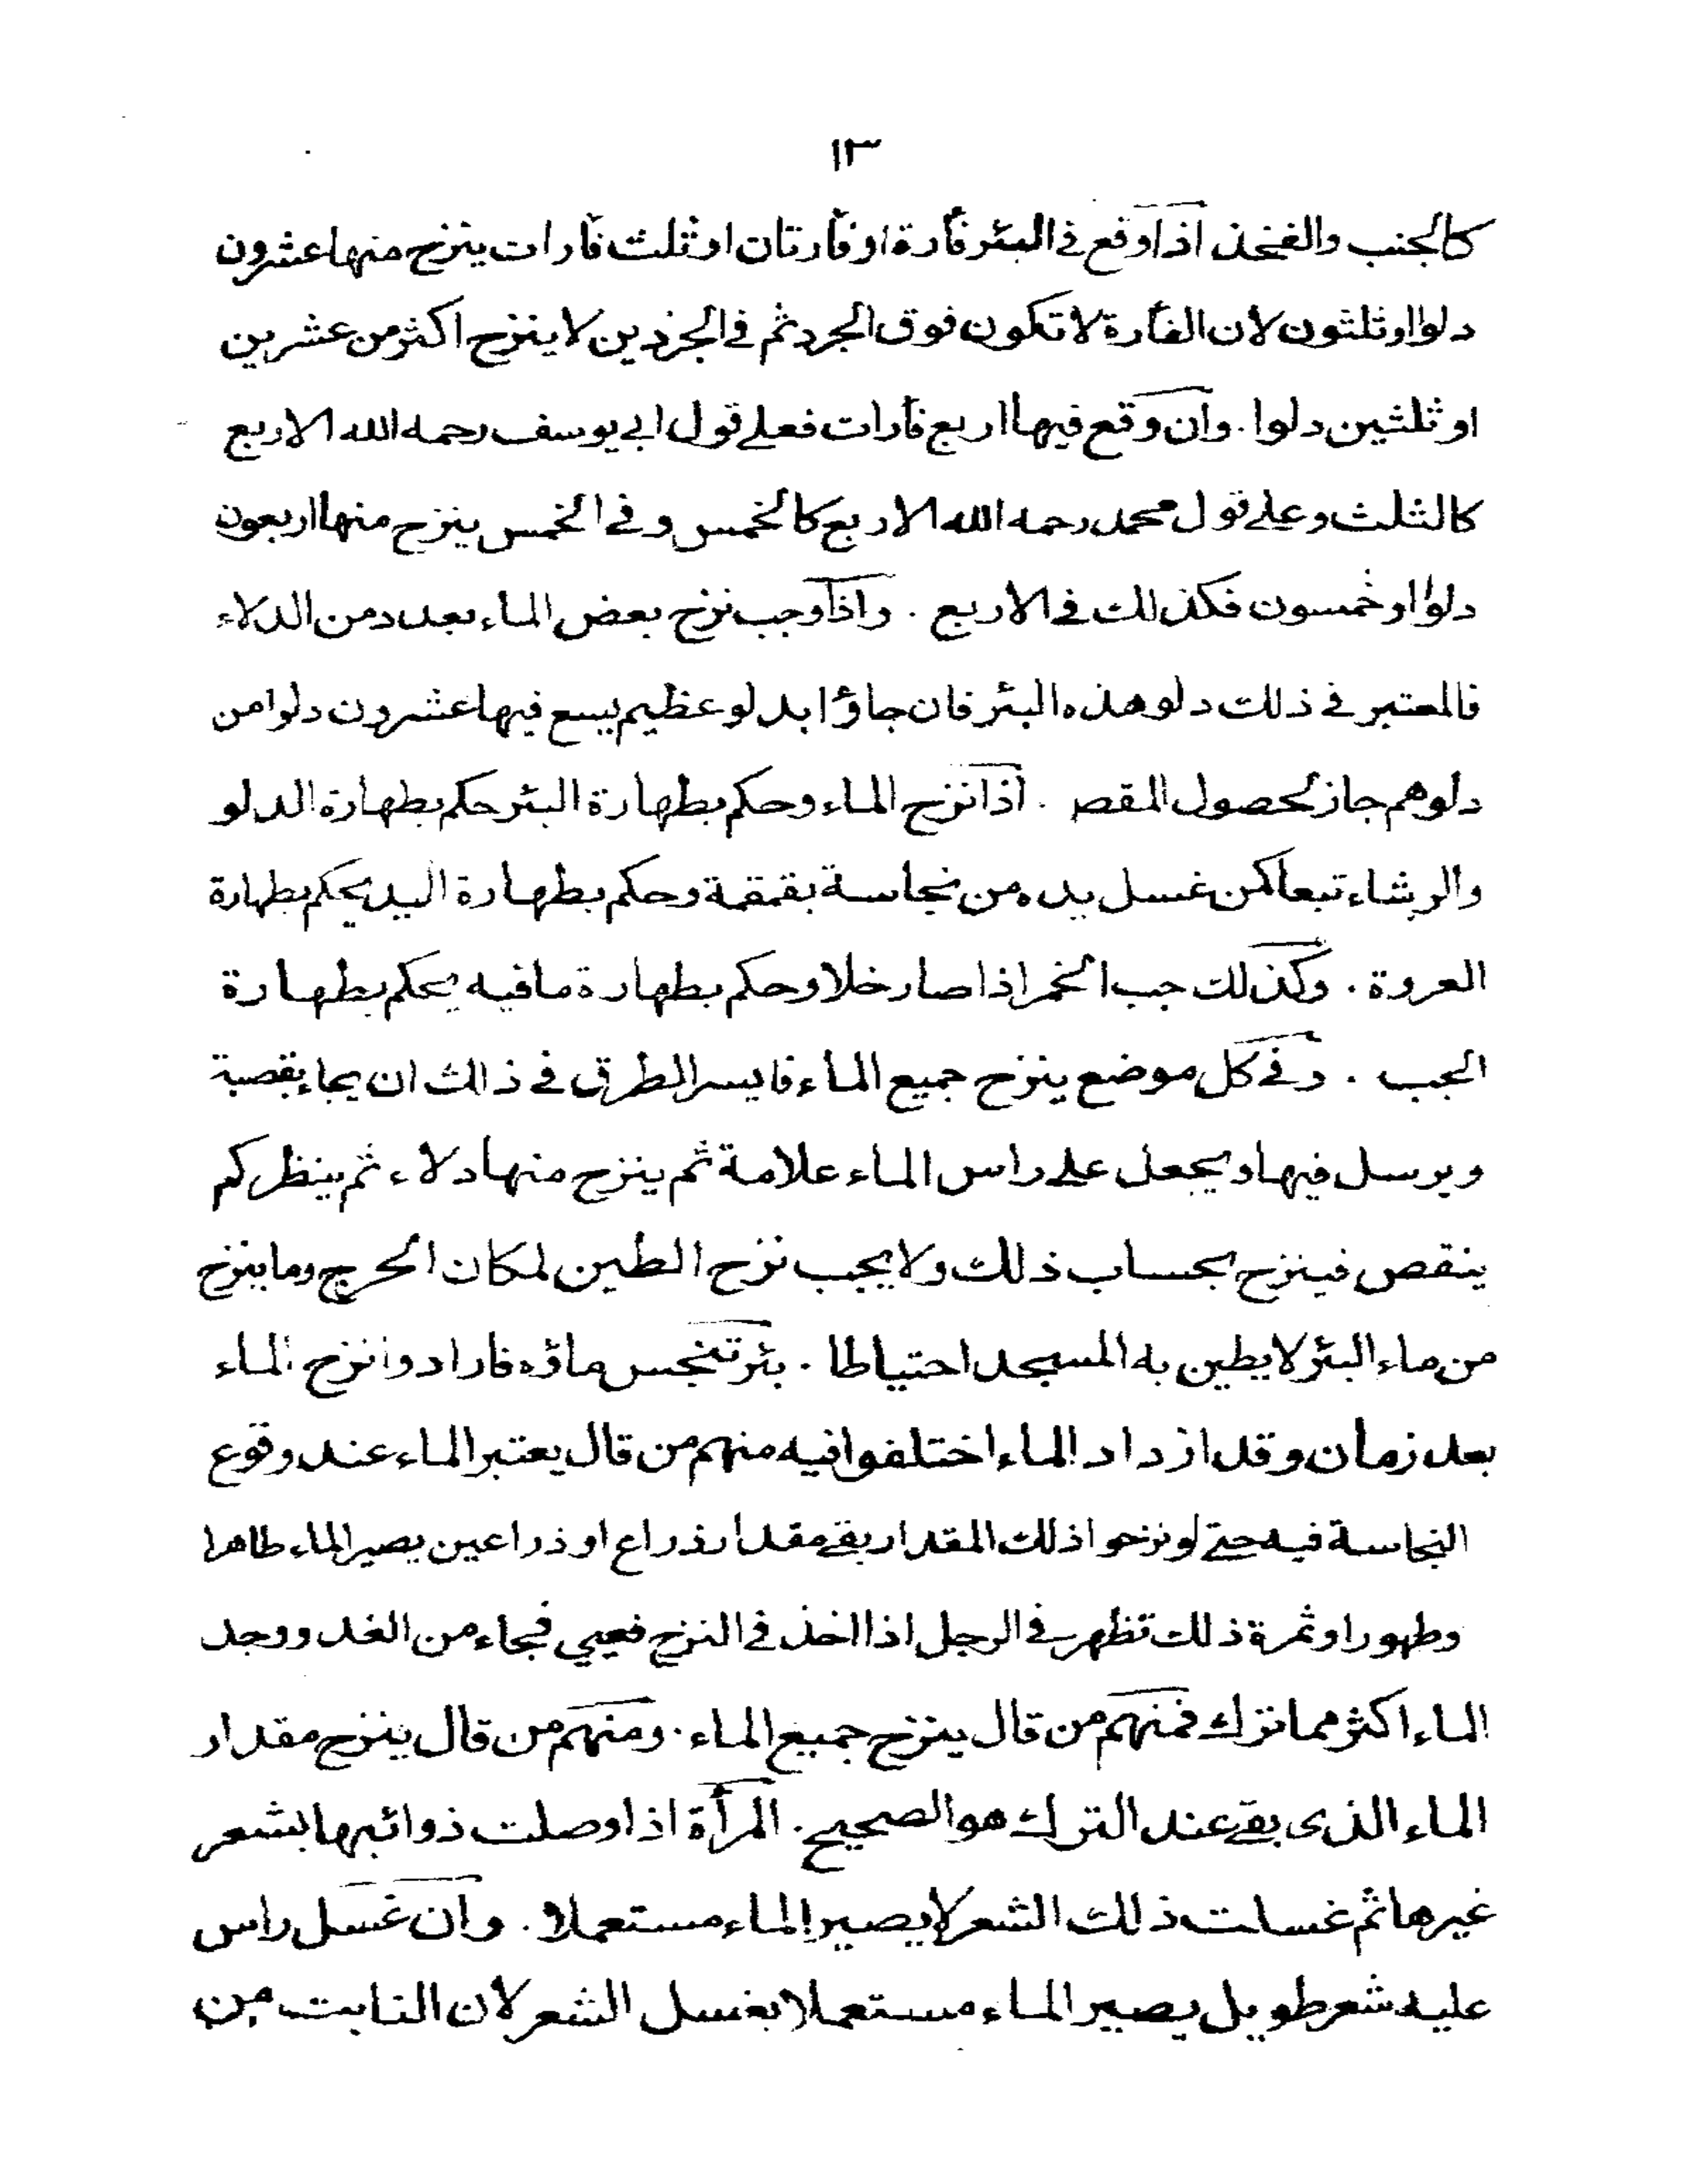 ١٣
كالجنب والفخذ اذا وقع في البئر فأرة او فأرتان او ثلث فأرات ينزح منها عشرون
دلوا او ثلثون لان الفأرة لا تكون فوق الجرد ثم في الجرذين لا ينزح اكثر من عشرين
او ثلثين دلوا . وان وقع فيها اربع فأرات فعلى قول ابي يوسف رحمه الله الاربع
كالثلث وعلى قول محمد رحمه الله الاربع كالخمس وفي الخمس ينزح منها اربعون
دلوا او خمسون فكذلك في الاربع . واذا وجب نزح بعض الماء بعدد من الدلاء
فالمعتبر في ذلك دلو هذه البئر فان جاؤا بدلو عظيم يسع فيها عشرون دلوا من
دلوهم جاز لحصول المقصد . اذا نزح الماء وحكم بطهارة البئر حكم بطهارة الدلو
والرشاء تبعا كمن غسل يده من نجاسة بقمقمة وحكم بطهارة اليد يحكم بطهارة
العروة . وكذلك جب الخمر اذا صار خلا وحكم بطهارة ما فيه يحكم بطهارة
الجب . وفي كل موضع ينزح جميع الماء فايسر الطرق في ذلك ان يجاء بقصبة
ويرسل فيها ويجعل على راس الماء علامة ثم ينزح منها دلاء ثم ينظر كم
ينقص فينزح بحساب ذلك ولا يجب نزح الطين لمكان الحرج وما ينزح
من ماء البئر لا يطين به المسجد احتياطا . بئر تنجس ماؤه فارادوا نزح الماء
بعد زمان وقد ازداد الماء اختلفوا فيه منهم من قال يعتبر الماء عند وقوع
النجاسة فيه حتى لو نزحوا ذلك المقدار بقي مقدار ذراع او ذراعين يصير الماء طاهرا
وطهورا وثمرة ذلك تظهر في الرجل اذا اخذ في النزح فعيي فجاء من الغد ووجد
الماء اكثر مما ترك فمنهم من قال ينزح جميع الماء . ومنهم من قال ينزح مقدار
الماء الذى بقي عند الترك هو الصحيح . المرأة اذا وصلت ذوائبها بشعر
غيرها ثم غسلت ذلك الشعر لا يصير الماء مستعملا . وان غسل راس
عليه شعر طويل يصير الماء مستعملا بغسل الشعر لان النابت من